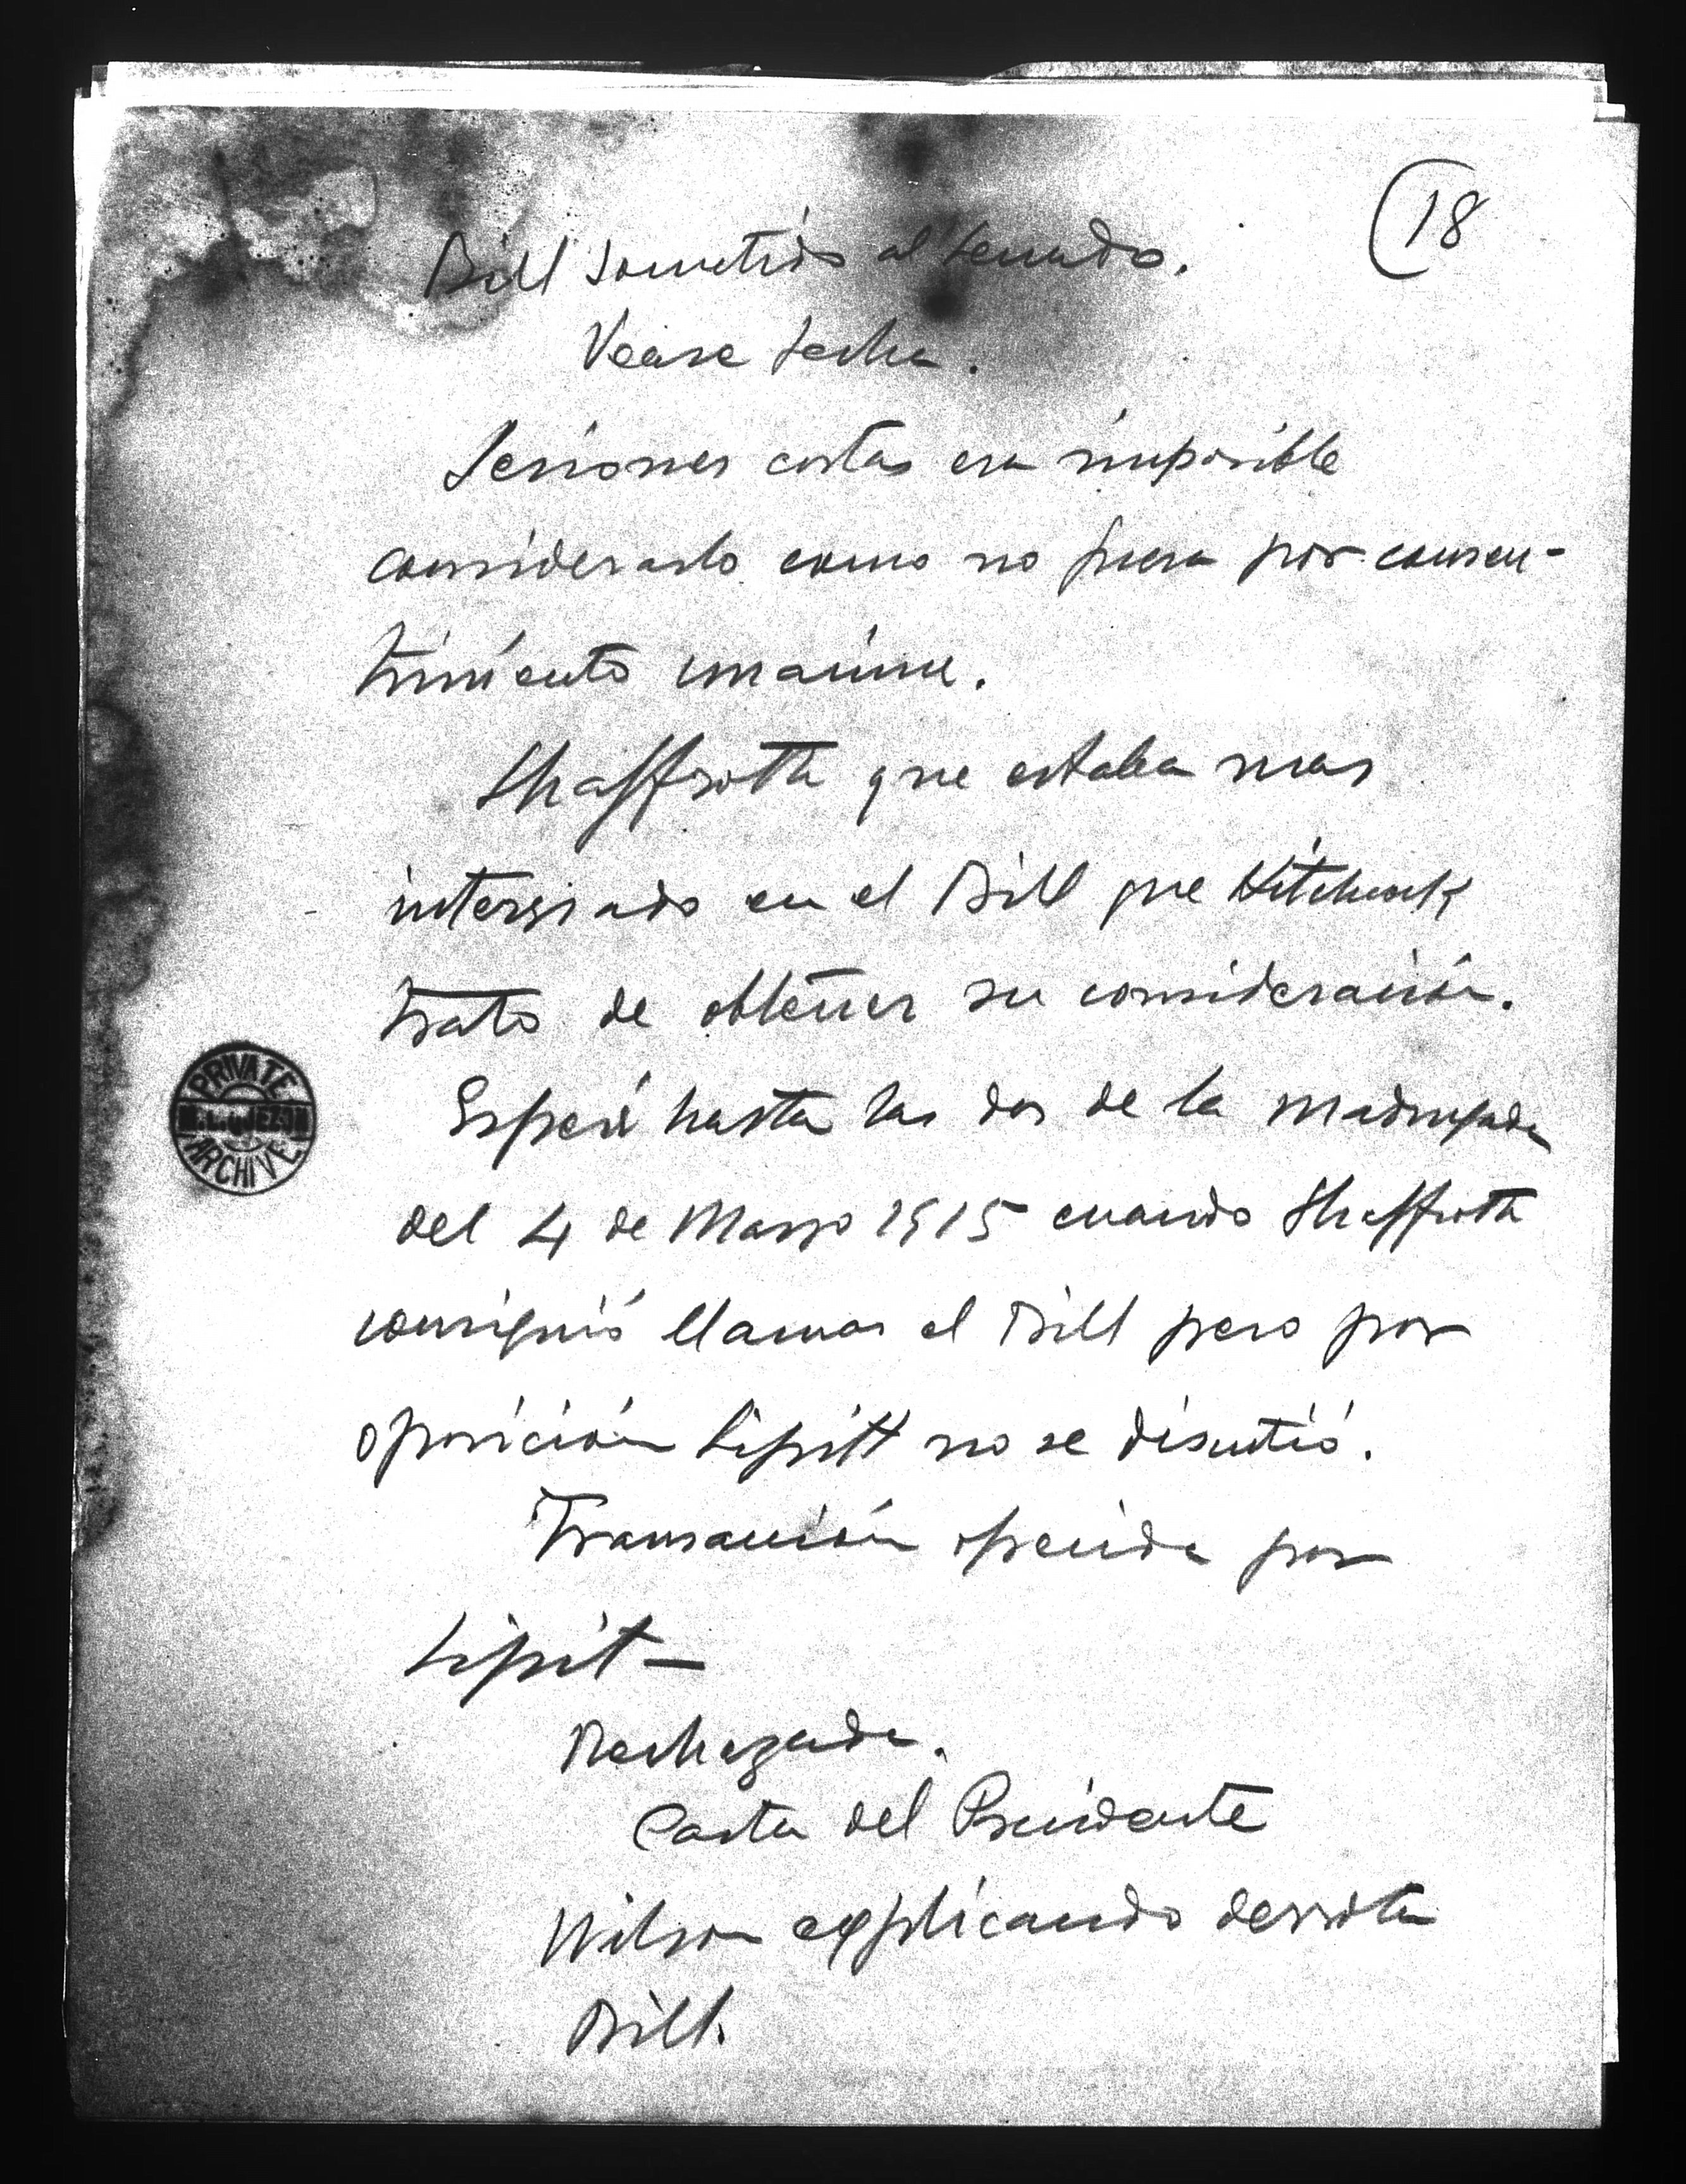 (18
Bill sometido al Senado.
Vease fecha.
Sesiones cortas era imposible
considerarlo como no fuera por consen-
timiento unanime.
Shaffroth que estaba mas
interesado en el Bill que Hitchcock
trato de obtener su consideración.
Esperé hasta las dos de la madrugada
del 4 de Marzo 1915 cuando Shaffroth
consiguió llamar el Bill pero por
oposición Lipitt no se discutió.
Transacción ofrecida por
Lipit —
Rechazada.
Carta del Presidente
Wilson explicando derrota
Bill.
PRIVATE
M.L.QUEZON
ARCHIVE